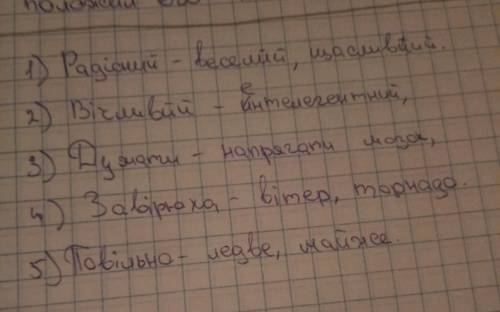 положий
1) Радісний - веселий, щасливий.
2) Вічливий -ентелегентний,
3) Думати - напрягати мозг,
4) Завірюха - вітер, торнадо.
5) Повільно - ледве, майже.